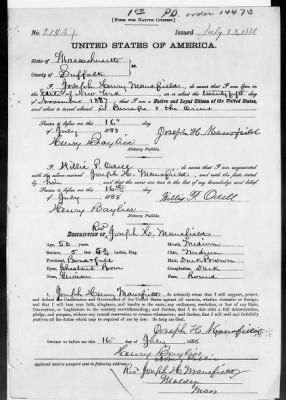 [FORM FOR NATIVE CITIZEN.]
order 14473
No. 21437
Issued July 23, 1888
UNITED STATES OF AMERICA.
State of Massachusetts
County of Suffolk
I, Joseph Henry Mansfield, do swear that I was born in the
State of New York on or about the
November 1837 that I am a Native and Loyal Citizen of the United States,
and about to travel abroad in Europe & the Orient
Sworn to before me this 16th
of July 1888
Joseph H. Mansfield
Henry Baylies
Notary Public.
I, Willis P. Odell, do swear that I am acquainted
with the above-named Joseph H. Mansfield, and with the facts stated
by him and that the same are true to the best of my knowledge and belief
Sworn to before me this 16th
of July 1888
Willis P. Odell
Henry Baylies
Notary Public.
DESCRIPTION OF Rev Joseph H. Mansfield
Age, 50 years
Mouth, Medium
Stature, 5 feet inches, Eng.
Chin, Medium
Forehead,
Hair, Dark Brown
Eyes,
Complexion, Dark
Nose,
Face, Round
I, Joseph Henry Mansfield, do solemnly swear that I will support, protect,
and defend the Constitution and Government of the United States against all enemies, whether domestic or foreign;
and that I will bear true faith, allegiance, and loyalty to the same, any ordinance, resolution, or law of any State,
Convention, or Legislature to the contrary notwithstanding; and further, that I do this with a full determination,
pledge, and purpose, without any mental reservation or evasion whatsoever; and further, that I will well and faithfully
perform all the duties which may be required of me by law: So help me God.
Joseph H. Mansfield
Sworn to before me this 16th day of July 1888
Henry Baylies
Notary Public.
Applicant desires passport sent to following address:
Rev. Joseph H. Mansfield
Malden
Mass